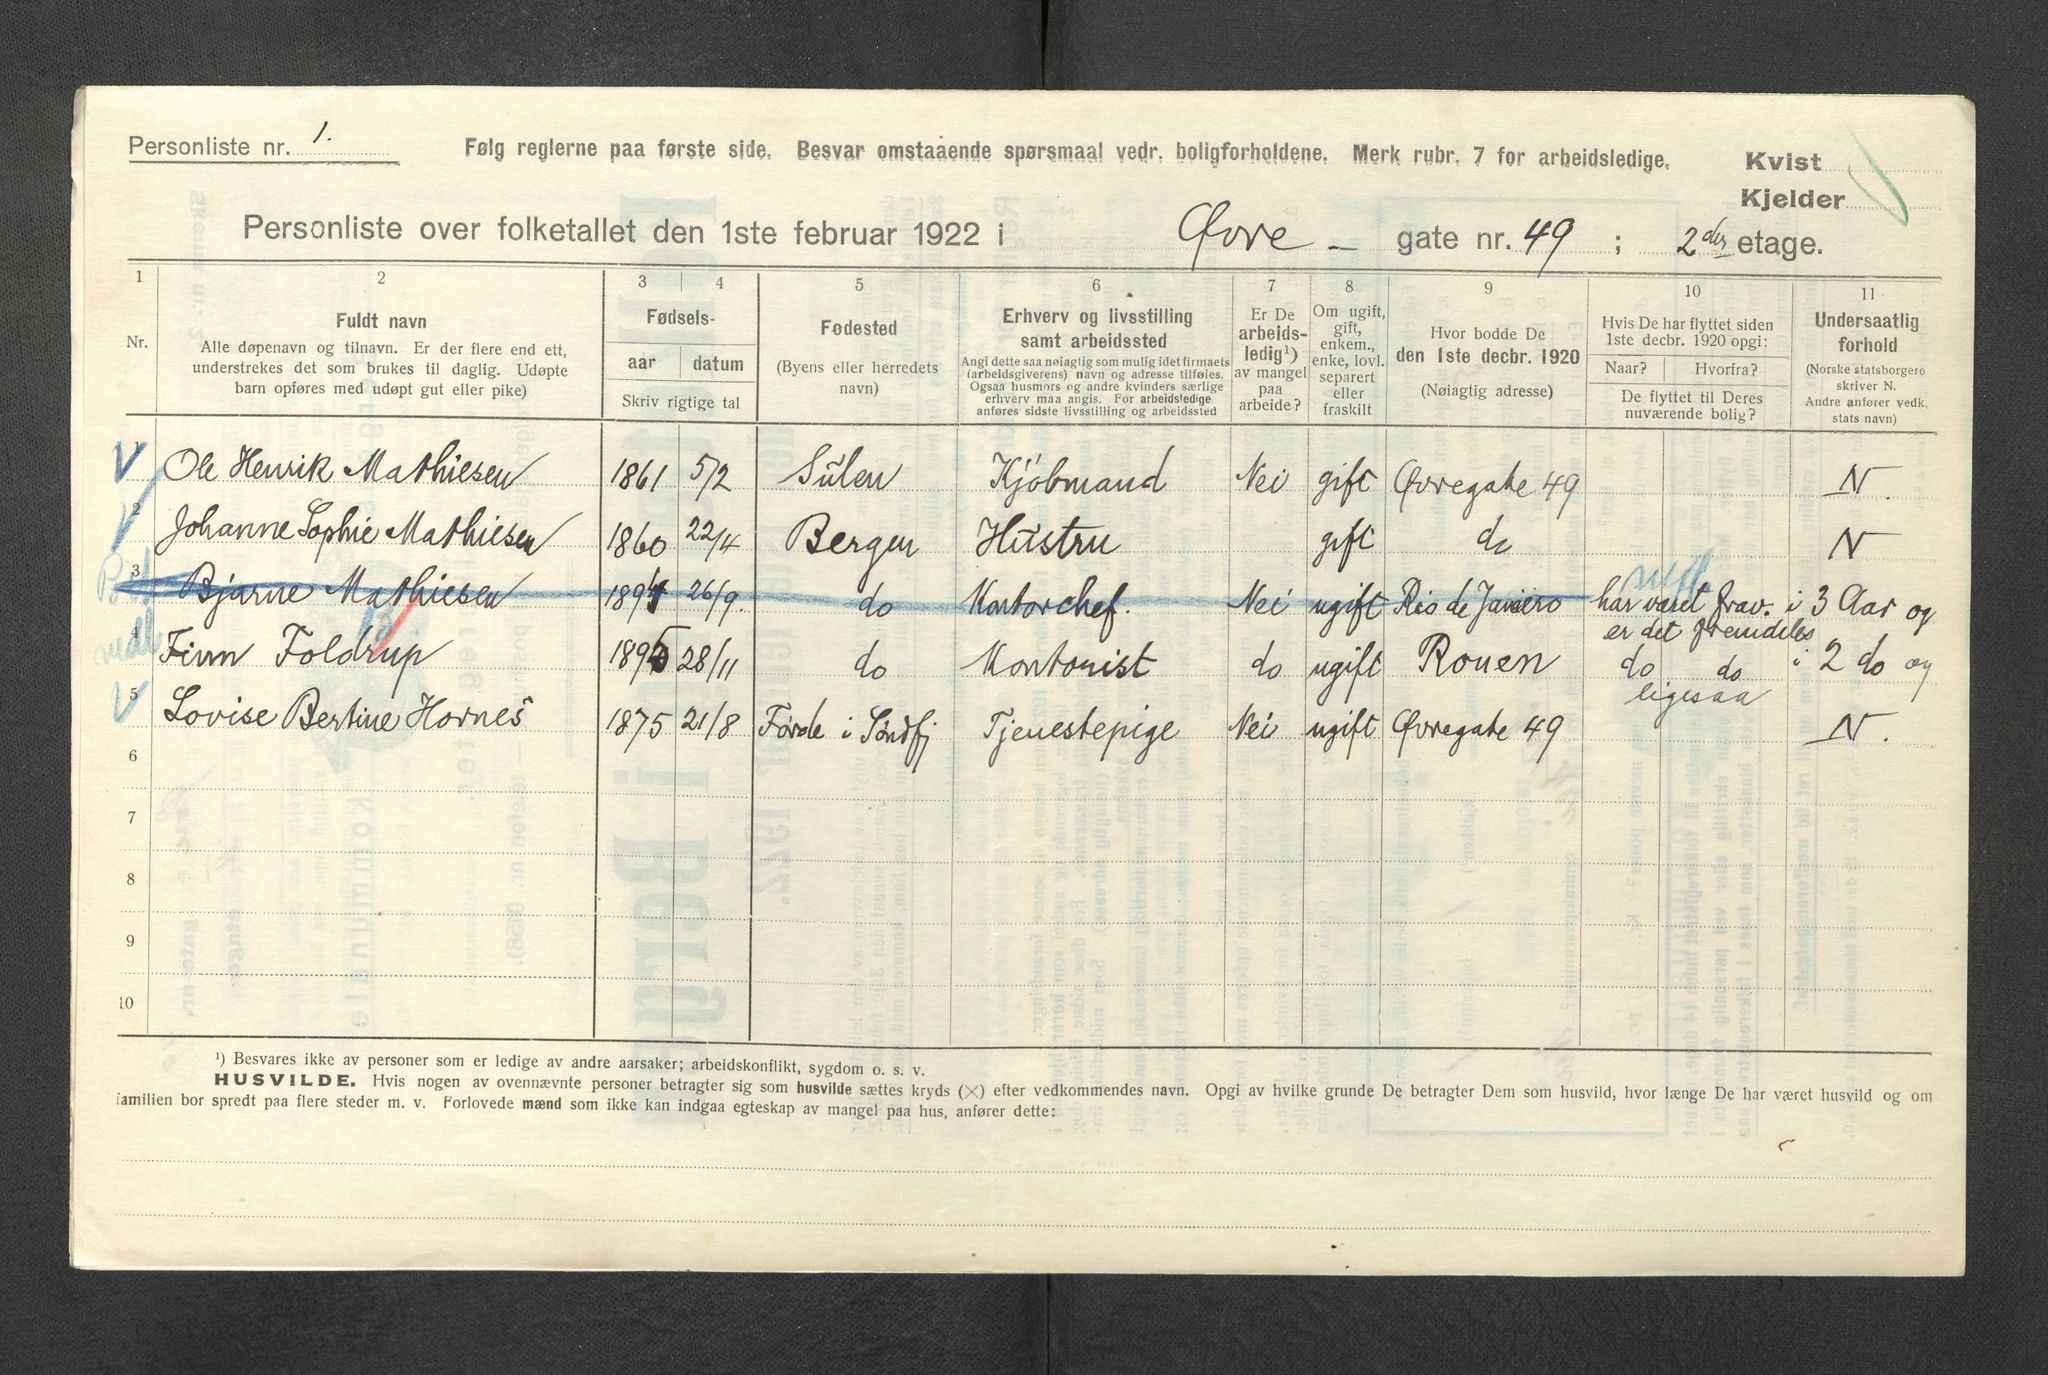 Personliste nr. 1.
Følg reglerne paa første side. Besvar omstaaende spørsmaal vedr. boligforholdene. Merk rubr. 7 for arbeidsledige.
Kvist
Kjelder
Personliste over folketallet den 1ste februar 1922 i Øvre - gate nr. 49 ; 2den etage.
1 2 3 4 5 6 7 8 9 10 11
Nr.
Fuldt navn
Alle døpenavn og tilnavn. Er der flere end ett,
understrekes det som brukes til daglig. Udøpte
barn opføres med udøpt gut eller pike)
Fødsels-
aar datum
Skriv rigtige tal
Fødested
(Byens eller herredets
navn)
Erhverv og livsstilling
samt arbeidssted
Angi dette saa nøiagtig som mulig idet firmaets
(arbeidsgiverens) navn og adresse tilføies.
Ogsaa husmors og andre kvinders særlige
erhverv maa angis. For arbeidsledige
anføres sidste livsstilling og arbeidssted
Er De
arbeids-
ledig¹)
av mangel
paa
arbeide?
Om ugift,
gift,
enkem.,
enke, lovl.
separert
eller
fraskilt
Hvor bodde De
den 1ste decbr. 1920
(Nøiagtig adresse)
Hvis De har flyttet siden
1ste decbr. 1920 opgi:
Naar? Hvorfra?
De flyttet til Deres
nuværende bolig?
Undersaatlig
forhold
(Norske statsborgere
skriver N.
Andre anfører vedk.
stats navn)
1 Ole Henrik Mathiesen 1861 5/2 Sülen Kjøbmand Nei gift Øvregate 49 N.
2 Johanne Sophie Mathiesen 1860 22/4 Bergen Hüstru gift do N
3 Bjarne Mathiesen 1894 26/9. do Kontorchef. Nei ugift Rio de Janiero har været frav. i 3 Aar og
er det fremdeles
4 Finn Foldrup 1895 28/11 do Kontorist do ugift Rouen do do i 2 do og
ligesaa
5 Lovise Bertine Hornes 1875 21/8 Førde i Søndfj Tjenestepige Nei ugift Øvregate 49 N.
6
7
8
9
10
¹) Besvares ikke av personer som er ledige av andre aarsaker; arbeidskonflikt, sygdom o. s. v.
HUSVILDE. Hvis nogen av ovennævnte personer betragter sig som husvilde sættes kryds (×) efter vedkommendes navn. Opgi av hvilke grunde De betragter Dem som husvild, hvor længe De har været husvild og om
familien bor spredt paa flere steder m. v. Forlovede mænd som ikke kan indgaa egteskap av mangel paa hus, anfører dette: